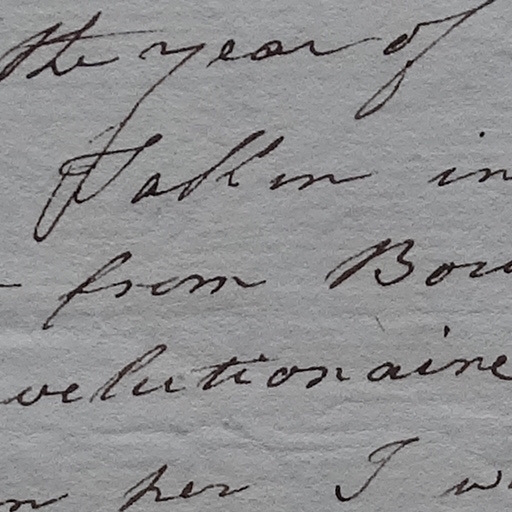 the year of
Fallen in
from Bou
volutionaire
per I w